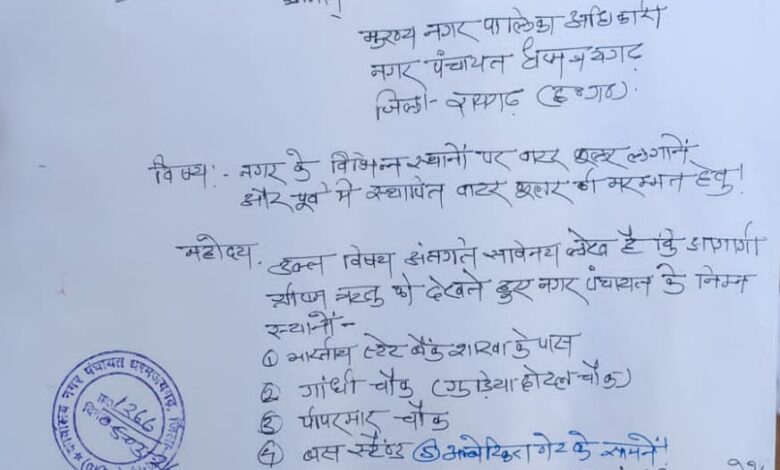 मुख्य नगर पालिका अधिकारी
नगर पंचायत धरमजयगढ़
जिला- रायगढ़ (छ०ग०).
विषय:- नगर के विभिन्न स्थानों पर वाटर कूलर लगाने
और पूर्व में स्थापित वाटर कूलर की मरम्मत हेतु!
महोदय. उक्त विषय अंतर्गत सविनय लेख है कि आगामी
ग्रीष्म ऋतु को देखते हुए नगर पंचायत के निम्न
स्थानों-
① भारतीय स्टेट बैंक शाखा के पास
② गांधी चौक (गुड़िया होटल चौक)
③ पीपरमार चौक
④ बस स्टैण्ड ⑤ के सामने
कार्यालय नगर पंचायत धरमजयगढ़, जिला
1266